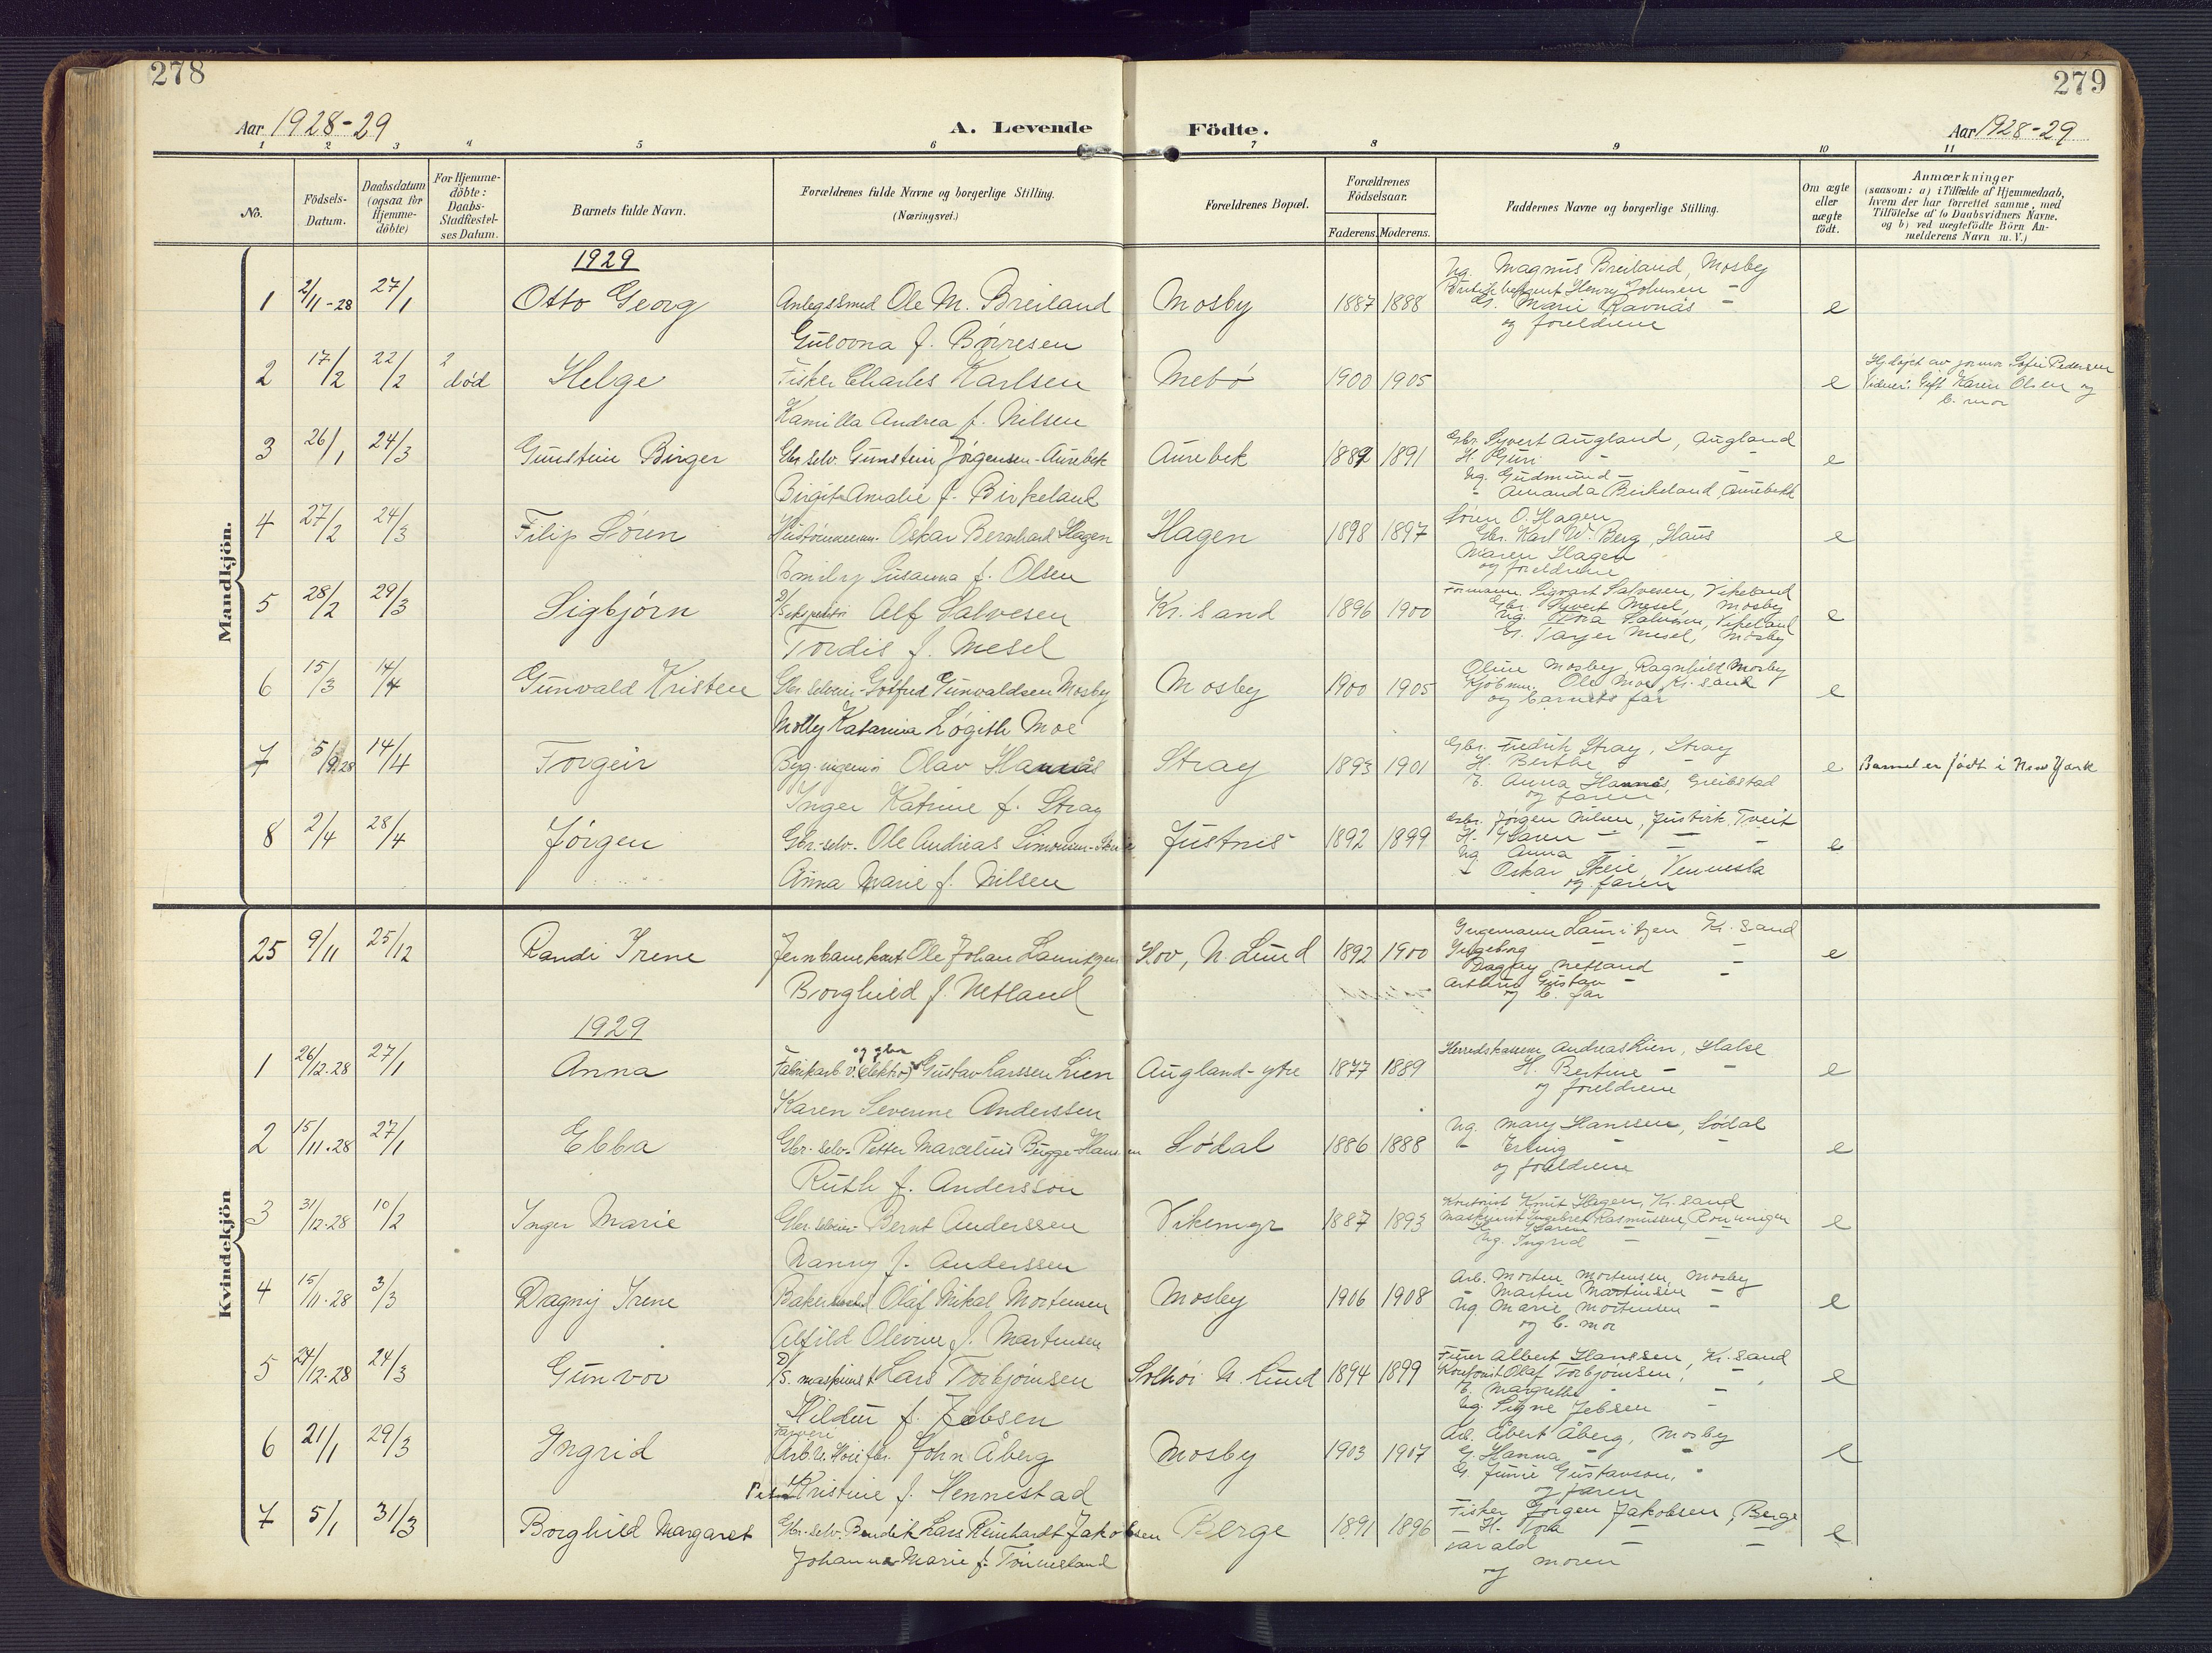 278
279
Aar 1928-29
A. Levende
Födte.
Aar 1928-29
1 2 3 4 5 6 7 8 9 10 11
No.
Födsels-
Datum.
Daabsdatum
(ogsaa for
Hjemme-
döbte)
For Hjemme-
döbte:
Daabs-
Stadfæstel-
ses Datum.
Barnets fulde Navn.
Forældrenes fulde Navne og borgerlige Stilling.
(Næringsvei.)
Forældrenes Bopæl.
Forældrenes
Födselsaar.
Faderens. Moderens.
Faddernes Navne og borgerlige Stilling.
Om ægte
eller
uægte
födt.
Anmærkninger
(saasom: a) i Tilfælde af Hjemmedaab,
hvem der har forrettet samme, med
Tilföielse af to Daabsvidners Navne.
og b) ved uægtefödte Börn An-
melderens Navn m. V.)
Mandkjön.
1929
1 2/11-28 27/1 Otto Georg Anlegssmed Ole M. Breiland Mosby 1887 1888 e
Gulovna f. Børresen
Ug. Magnus Breiland, Mosby
Henry Johnsen -
G. Marie Ravnås -
og foreldrene
2 17/2 22/2 død Helge Fisker Charles Karlsen Mebø 1900 1905 e
Kamilla Andrea f. Nilsen
Hj.døpt av jormor Sofie Pedersen
Vidner: Gift Karen Olsen og
b. mor
3 26/1 24/3 Gunstein Birger Gbr. selv. Gunstein Jørgensen-Aurebek Aurebek 1889 1891 e
Birgit Amalie f. Birkeland
Gbr. Syvert Augland, Augland
H. Guri - -
Ug. Gudmund -
- Amanda Birkeland, Aurebekk
4 27/2 24/3 Filip Søren Hustømmerm. Oskar Bernhard Hagen Hagen 1898 1897 e
Emily Susanna f. Olsen
Søren O. Hagen
Gbr. Karl W. Berg, Haus
Maren Hagen
og foreldrene
5 28/2 29/3 Sigbjørn D/S ekspeditør Alf Salvesen Kr.sand 1896 1900 e
Tordis f. Mesel
Formann Sigvart Salvesen, Vikeland
Gbr. Syvert Mesel, Mosby
Ug. Tora Salvesen, Vikeland
G. Tarjer Mesel, Mosby
6 15/3 14/4 Gunvald Kristen Gbr. selveier Gotfred Gunvaldsen Mosby Mosby 1900 1905 e
Molly Katarina Løgith Moe
Oline Mosby, Ragnhild Mosby
Kjøbm. Ole Moe, Kr.sand
og barnets far
7 5/9.28 14/4 Torgeir Byg.ingeniør Olav Hannås Stray 1893 1901 e Barnet er født i New York
Inger Katrine f. Stray
Gbr. Fredrik Stray, Stray
H. Berthe - -
E. Anna Hannås, Greibstad
og faren
8 2/4 28/4 Jørgen Gbr.-selv. Ole Andreas Simonsen-Skeie Justnes 1892 1899 e
Anna Marie f. Nilsen
Gbr. Jørgen Nilsen, Justvik, Tveit
H. Karen - - -
Ug Anna - - -
- Oskar Skeie, Vennesla
og faren
Kvindekjön
25 9/11 25/12 Randi Irene Jernbanekont. Ole Johan Lauritzen Hov, N. Lund 1892 1900 e
Borghild f. Netland
Ingemann Lauritzen Kr.sand
Ingeborg - -
Dagny Netland -
Gustav -
og b. far
1929
1 26/12.28 27/1 Anna Fabrikarb. v. (elektro) og glas Gustav Larssen Lien Augland-ytre 1877 1889 e
Karen Severine Anderssen
Herredskasserer Andreas Lien, Halse
H. Bertine - -
og foreldrene
2 15/11.28 27/1 Ebba Gbr.-selv. Petter Marcelius Bugge-Hanssen Sødal 1886 1888 e
Ruth f. Andersson
Ug. Mary Hanssen, Sødal
- Erling - -
og foreldrene
3 31/12.28 10/2 Inger Marie Gbr. selveier Bernt Anderssen Vikemyr 1887 1893 e
Nanny f. Anderssen
Kontorist Knut Hagen, Kr.sand
Maskinist Ingebret Rasmussen, Rønningen
H. Karen - -
Ug. Ingrid - -
4 15/11.28 3/3 Dagny Irene Baker Olaf Mikal Mortensen Mosby 1906 1908 e
Alfild Olevine f. Martinsen
Arb. Morten Mortensen, Mosby
- Martin Martinsen -
Ug Marie Mortensen -
og b. mor
5 24/12.28 24/3 Gunvor D/S. maskinist Lars Torbjørnsen Solhøi N. Lund 1894 1899 e
Hildur f. Jebsen
Furer Albert Hanssen, Kr.sand
Kontorist Olaf Torbjørnsen, -
E. Margrethe - -
Ug. Signe Jebsen -
6 21/1 29/3 Ingrid Farveri Arb. v. Høie fbr. John Åberg Mosby 1903 1907 e
Kristine f. Hennestad
Arb. Åbert Åberg, Mosby
G. Hanna - -
G. Junie Gustavson, -
og faren
7 5/1 31/3 Borghild Margaret Gbr.-selv. Bendik Lars Reinhardt Jakobsen Berge 1891 1896 e
Johanna Marie f. Tønnesland
Fisker Jørgen Jakobsen, Berge
- H. Tora - -
Harald - -
og moren